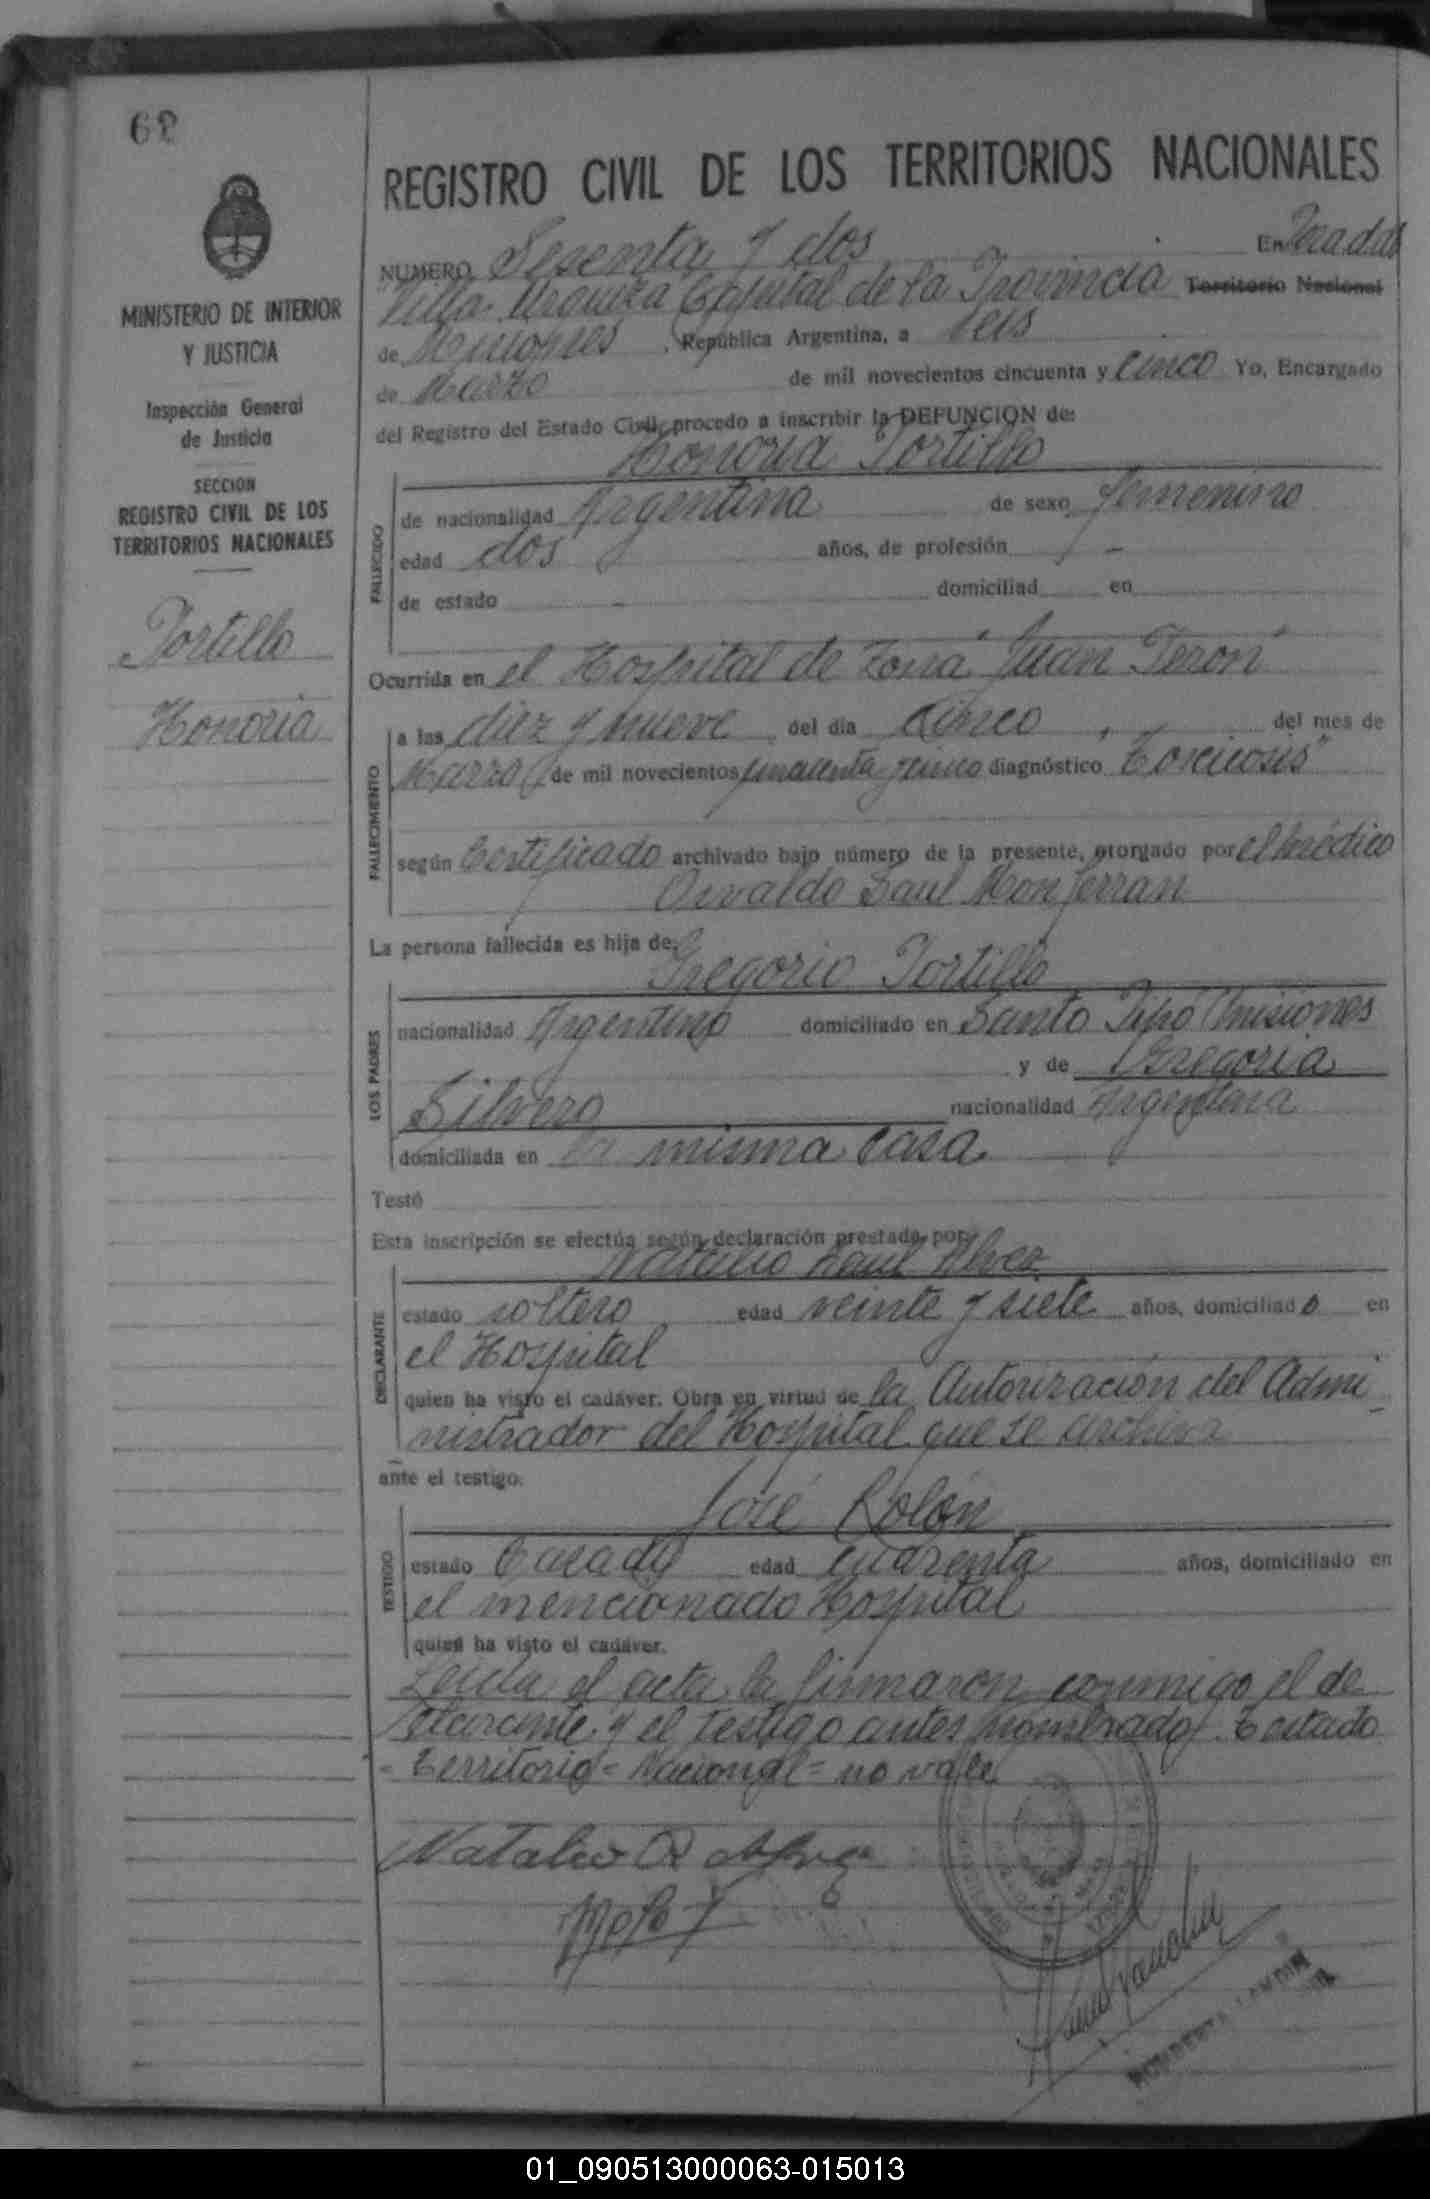 62
MINISTERIO DE INTERIOR
Y JUSTICIA
Inspección General
de Justicia
SECCION
REGISTRO CIVIL DE LOS
TERRITORIOS NACIONALES
Portillo
Honoria
REGISTRO CIVIL DE LOS TERRITORIOS NACIONALES
NUMERO Sesenta y dos En Posadas
Villa Urquiza Capital de la Provincia Territorio Nacional
de Misiones, República Argentina, a seis
de Marzo de mil novecientos cincuenta y cinco Yo, Encargado
del Registro del Estado Civil, procedo a inscribir la DEFUNCION de:
Honoria Portillo
FALLECIDO
de nacionalidad Argentina de sexo femenino
edad dos años, de profesión -
de estado - domiciliad en
Ocurrida en el Hospital de Zona "Juan Peron"
FALLECIMIENTO
a las diez y nueve del dia cinco, del mes de
Marzo de mil novecientos cincuenta y cinco diagnóstico "Toxicosis"
según Certificado archivado bajo número de la presente, otorgado por el médico
Osvaldo Saul Monferran
La persona fallecida es hija de:
Gregorio Portillo
LOS PADRES
nacionalidad Argentino domiciliado en Santo Pipó Misiones
y de Gregoria
Silvero nacionalidad Argentina
domiciliada en la misma casa
Testó
Esta inscripción se efectúa según declaración prestada por:
Natalio Raul Alvez
DECLARANTE
estado soltero edad veinte y siete años, domiciliado en
el Hospital
quien ha visto el cadáver. Obra en virtud de la Autorización del Admi
nistrador del Hospital que se archiva
ante el testigo:
José Rolón
TESTIGO
estado Casado edad cuarenta años, domiciliado en
el mencionado Hospital
quien ha visto el cadáver.
Leida el acta la firmaron conmigo el de
clarante y el testigo antes nombrado. Testado
= Territorio = Nacional = no vale
Natalio R
01_090513000063-015013